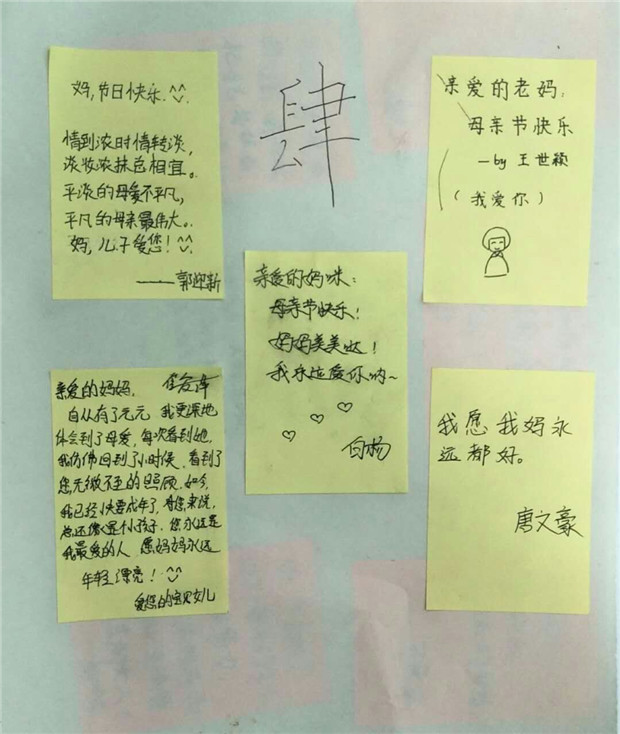 妈,节日快乐.^^
情到浓时情转淡,
淡妆浓抹总相宜。
平淡的母爱不平凡,
平凡的母亲最伟大。
妈,儿子爱您!^^
——郭迎新
肆
亲爱的老妈:
母亲节快乐
—by 王世颖
(我爱你)
亲爱的妈咪:
母亲节快乐!
妈妈美美哒!
我永远爱你呦~
白杨
亲爱的妈妈,
自从有了元元 我更深地
体会到了母爱,每次看到她,
我仿佛回到了小时候,看到了
您无微不至的照顾,如今,
我已经快要成年了,对您来说,
总还像是个小孩子,您永远是
我最爱的人 愿妈妈永远
年轻漂亮!^^
爱您的宝贝女儿
我愿我妈永
远都好。
唐文豪